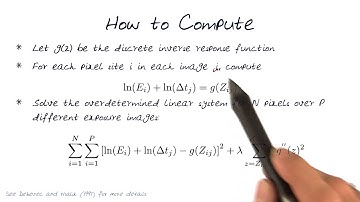 How to Compute
* Let g(z) be the discrete inverse response function
* For each pixel site i in each image j, compute
ln(E_i) + ln(Δt_j) = g(Z_i
* Solve the overdetermined linear system N pixels over P
different exposure images
\sum_{i=1}^{N} \sum_{j=1}^{P} [ln(E_i) + ln(Δt_j) - g(Z_{ij})]^2 + λ \sum_{z=Z g''(z)^2
See Debevec and Malik (1997) for more details